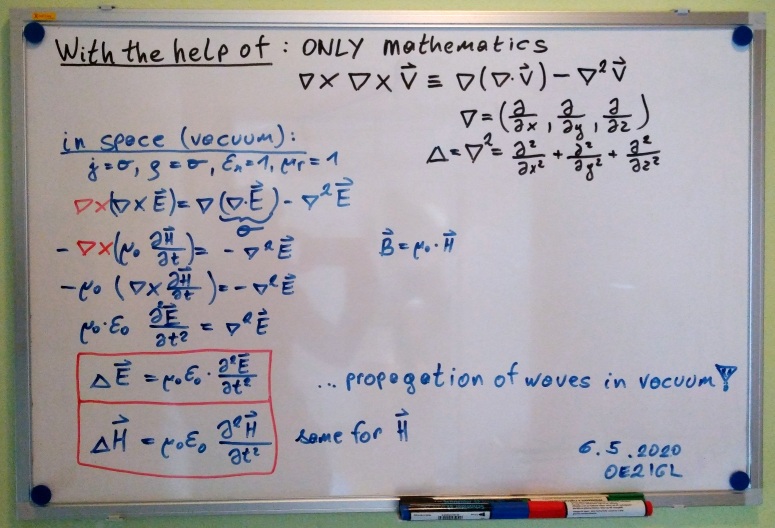 With the help of : ONLY mathematics
∇× ∇× V⃗ ≡ ∇(∇·V⃗) − ∇²V⃗
∇ = (∂/∂x, ∂/∂y, ∂/∂z)
Δ = ∇² = ∂²/∂x² + ∂²/∂y² + ∂²/∂z²
in space (vacuum):
j = 0, ρ = 0, εr = 1, μr = 1
∇×(∇× E⃗) = ∇(∇·E⃗) − ∇²E⃗
0
− ∇×(μ₀ ∂H⃗/∂t) = − ∇²E⃗
B⃗ = μ₀·H⃗
−μ₀ (∇× ∂H⃗/∂t) = −∇²E⃗
μ₀·ε₀ ∂²E⃗/∂t² = ∇²E⃗
ΔE⃗ = μ₀ε₀ · ∂²E⃗/∂t²
... propagation of waves in vacuum!
ΔH⃗ = μ₀ε₀ ∂²H⃗/∂t²
same for H⃗
6.5.2020
OE2IGL